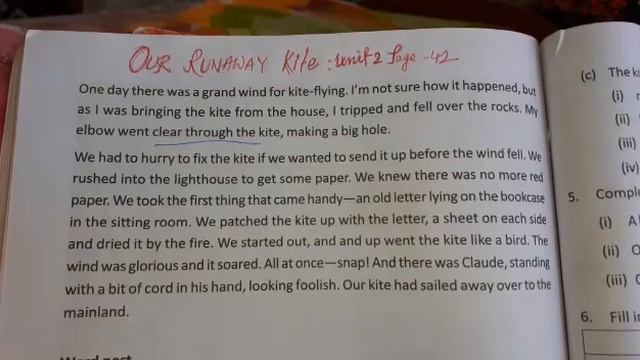 OUR RUNAWAY KIte : unit 2 Page - 42
One day there was a grand wind for kite-flying. I'm not sure how it happened, but
as I was bringing the kite from the house, I tripped and fell over the rocks. My
elbow went clear through the kite, making a big hole.
We had to hurry to fix the kite if we wanted to send it up before the wind fell. We
rushed into the lighthouse to get some paper. We knew there was no more red
paper. We took the first thing that came handy—an old letter lying on the bookcase
in the sitting room. We patched the kite up with the letter, a sheet on each side
and dried it by the fire. We started out, and and up went the kite like a bird. The
wind was glorious and it soared. All at once—snap! And there was Claude, standing
with a bit of cord in his hand, looking foolish. Our kite had sailed away over to the
mainland.
(c) The ki
(i)
(ii)
(iii)
(iv)
5. Comple
(i) A
(ii) O
(iii)
6. Fill i